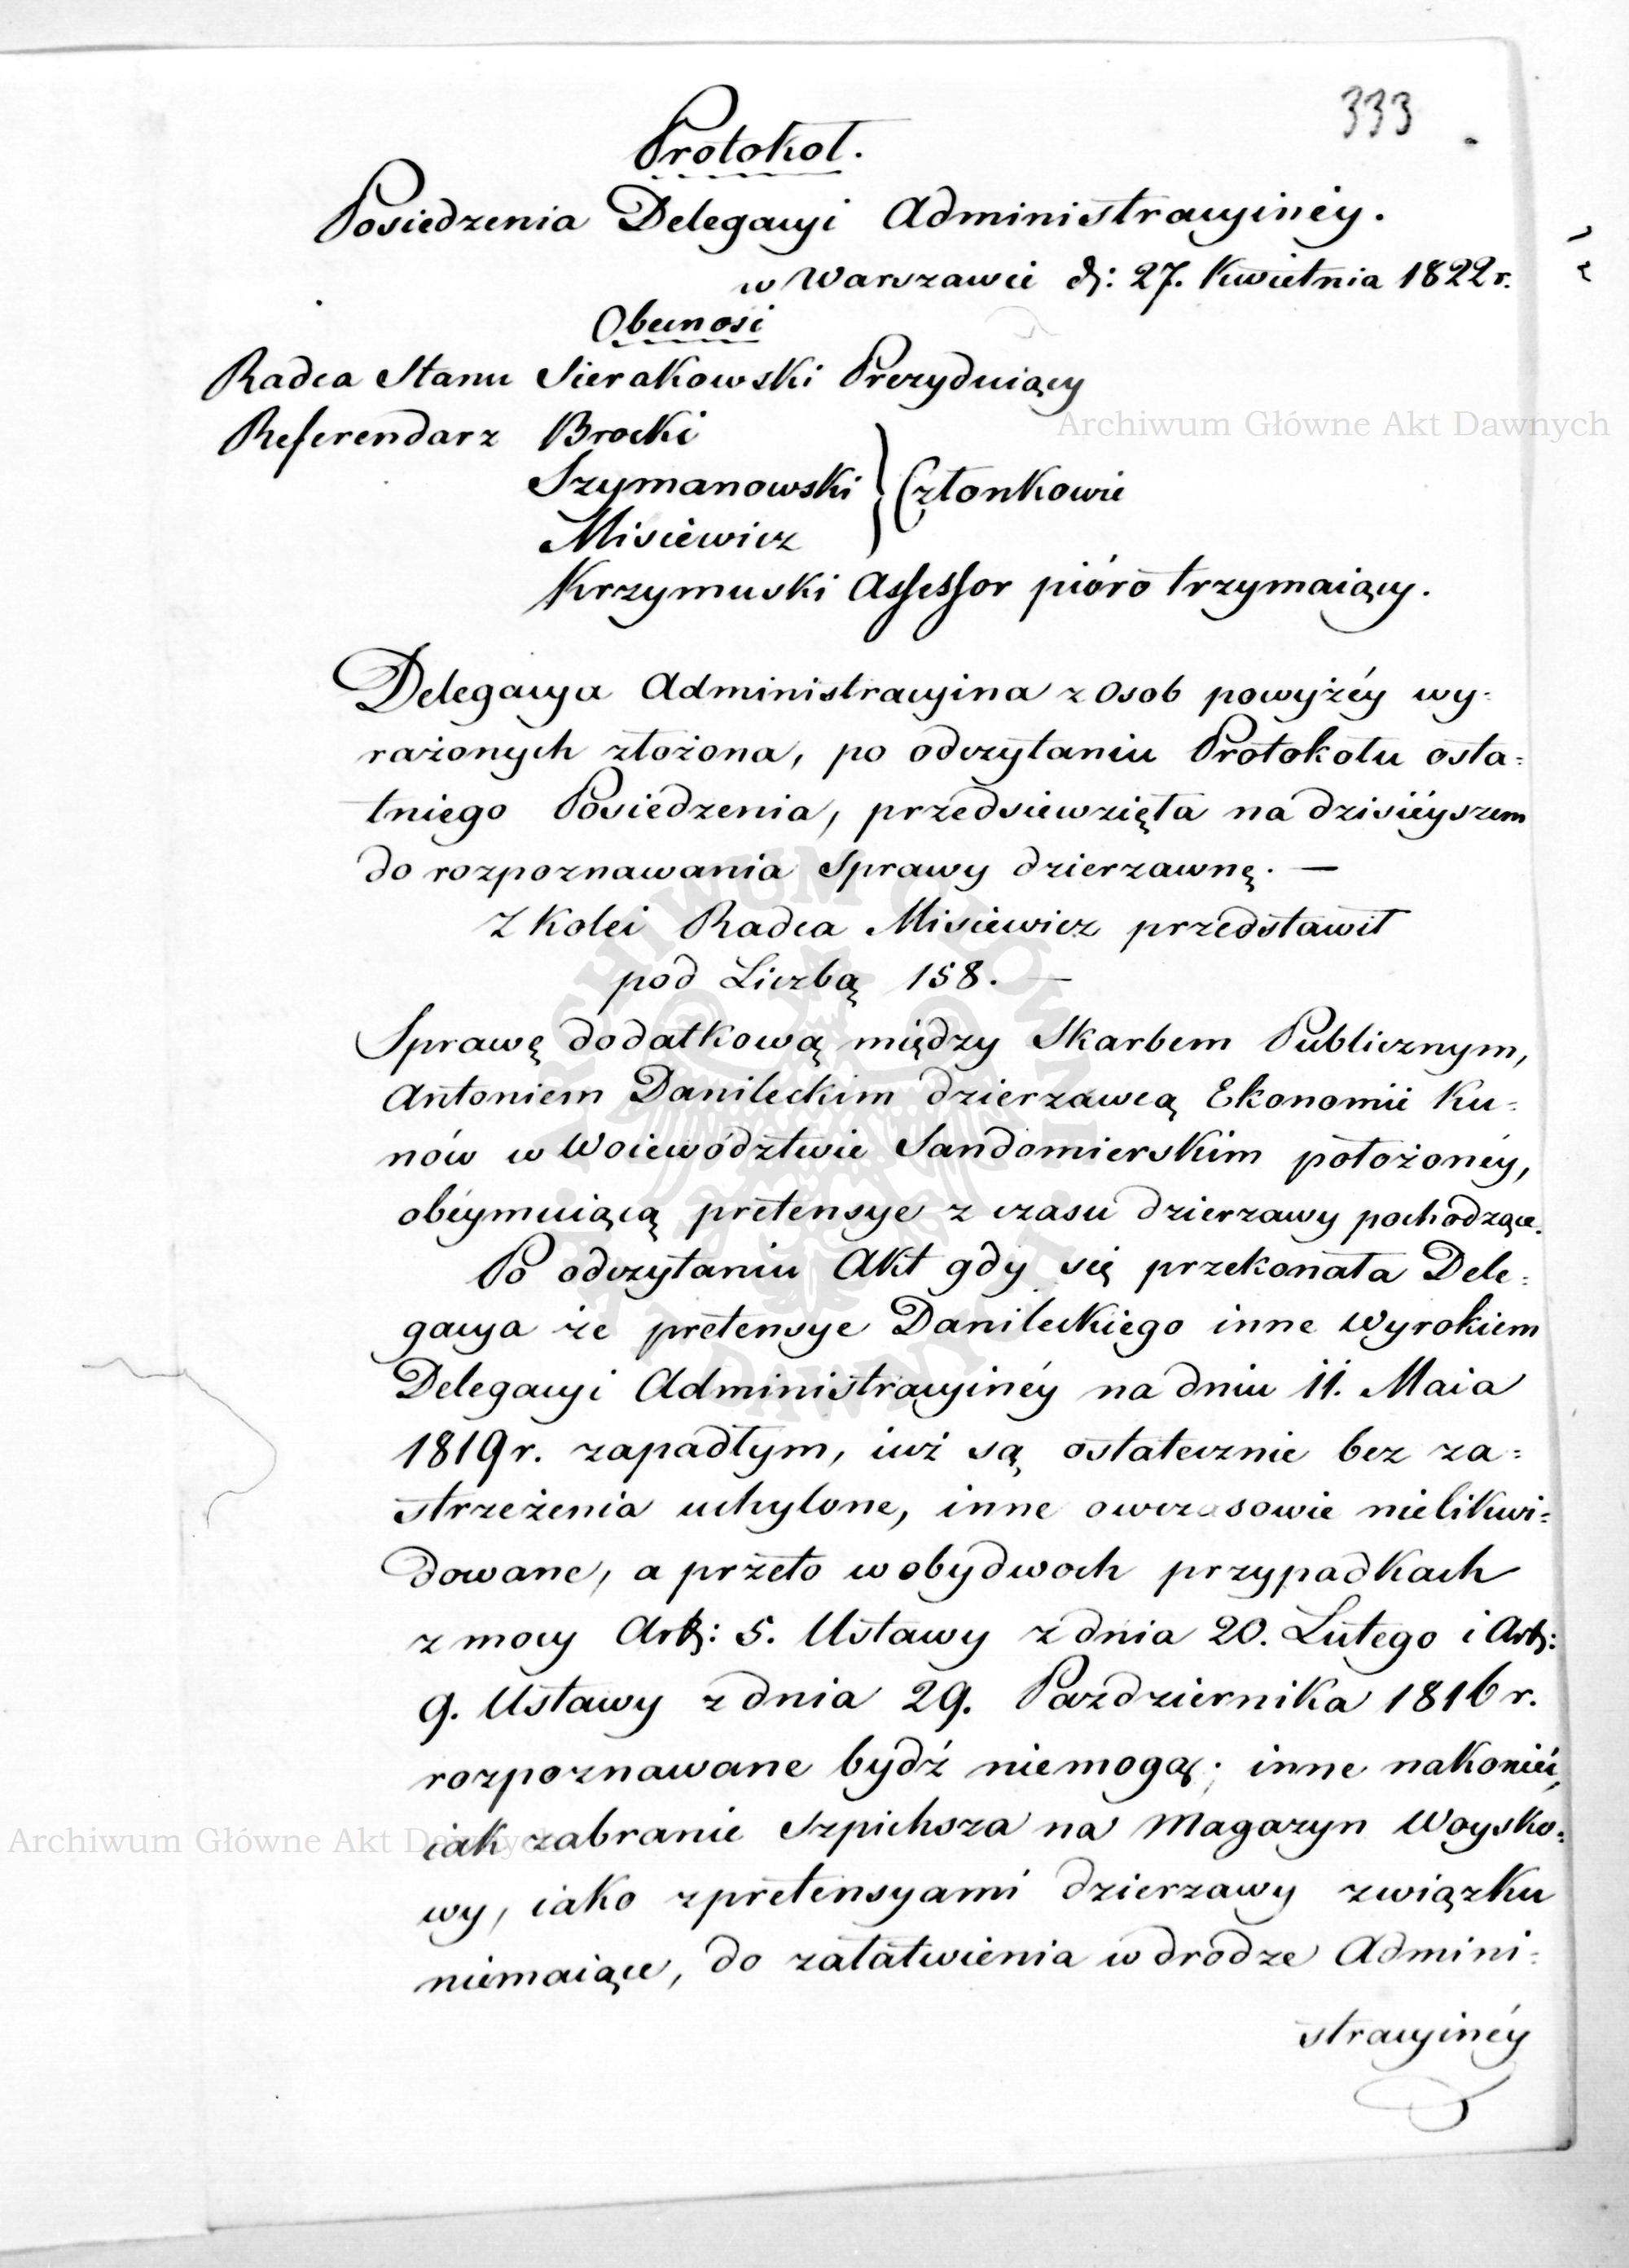 333
Protokoł.
Posiedzenia Delegacyi Administracyinéy.
w Warszawie d: 27. Kwietnia 1822 r.
Obecnosi
Radca Stanu Sierakowski Prezyduiący
Referendarz Brocki
Szymanowski } Członkowie
Misiewicz
Krzymuski Assessor pióro trzymaiący.
Delegacya Administracyina z osob powyżéy wy-
rażonych złożona, po odczytaniu Protokołu osta=
tniego Posiedzenia, przedsiewzięła na dzisiéyszem
do rozpoznawania Sprawy dzierzawnę. —
Z kolei Radca Misiewicz przedstawił
pod Liczbą 158. —
Sprawę dodatkową między Skarbem Publicznym,
Antoniem Danileckim dzierzawcą Ekonomii Ku=
nów w Woiewództwie Sandomierskim położonéy,
obéymuiącą pretensye z czasu dzierzawy pochodzące.
Po odczytaniu Akt gdy się przekonała Dele=
gacya że pretensye Danileckiego inne Wyrokiem
Delegacyi Administracyinéy na dniu 11. Maia
1819 r. zapadłym, iuż są ostatecznie bez za=
strzeżenia uchylone, inne owczasowie nielikwi=
dowane, a przeto w obydwoch przypadkach
z mocy Art: 5. Ustawy z dnia 20. Lutego i Art:
9. Ustawy z dnia 29. Pazdziernika 1816 r.
rozpoznawane bydź niemogą; inne nakoniéc,
iak zabranie Szpichsza na Magazyn Woysko=
wy, iako z pretensyami dzierzawy związku
niemaiące, do załatwienia w drodze Admini=
stracyinéy
Archiwum Główne Akt Dawnych
Archiwum Główne Akt Dawnych
ARCHIWUM GŁÓWNE AKT DAWNYCH